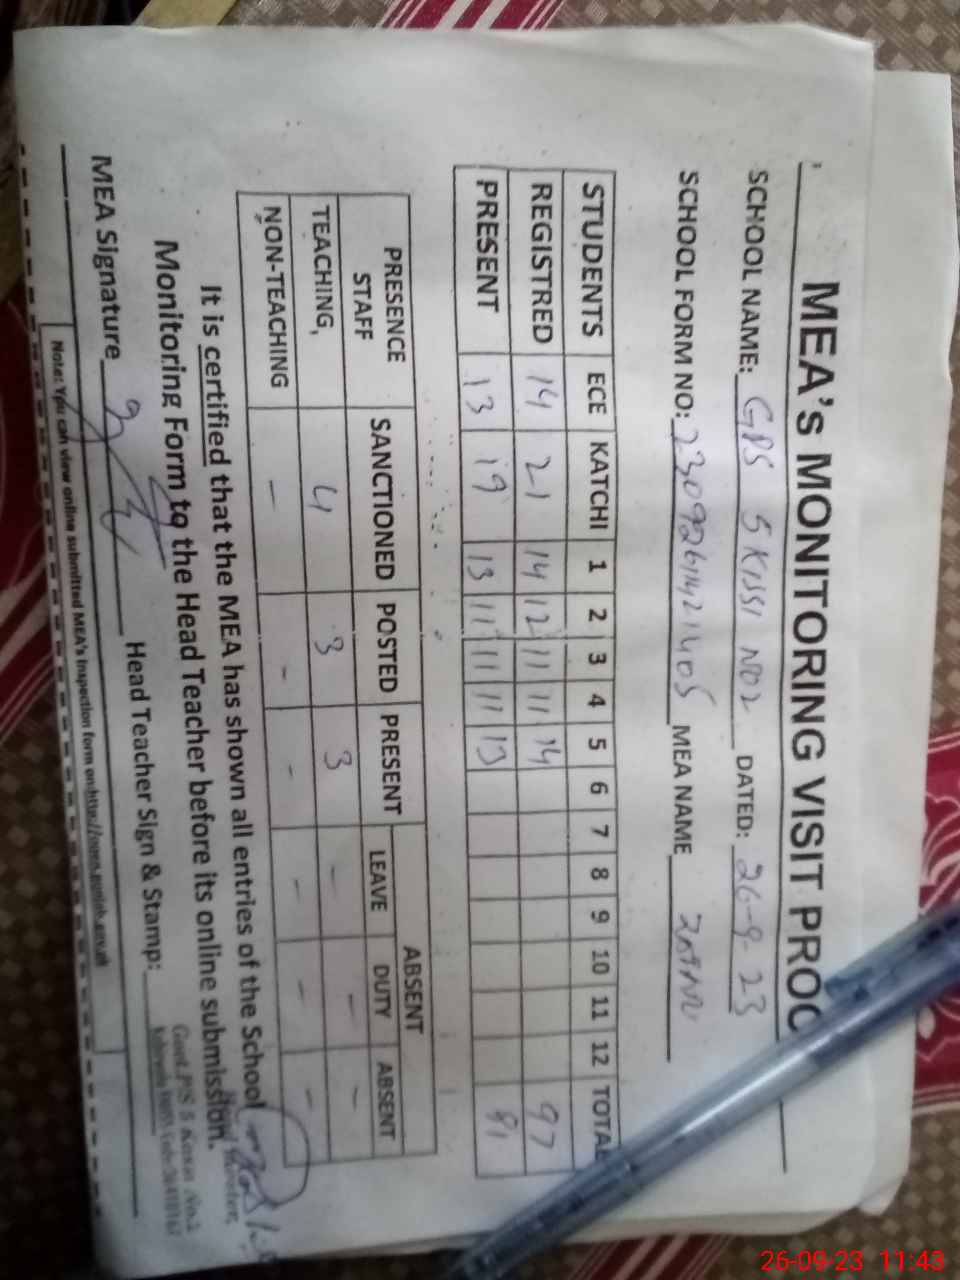 MEA's MONITORING VISIT PROO
SCHOOL NAME: GPS 5 KISSI NO2 DATED: 26-9-23
SCHOOL FORM NO: MEA NAME
STUDENTS ECE KATCHI 1 2 3 4 5 6 7 8 9 10 11 12 TOTAL
REGISTRED 14 21 14 12 11 11 14 97
PRESENT 13 19 13 11 11 11 13 91
PRESENCE STAFF SANCTIONED POSTED PRESENT ABSENT
LEAVE DUTY ABSENT
TEACHING, 4 3 3 - - -
NON-TEACHING - - - - - -
It is certified that the MEA has shown all entries of the School
Monitoring Form to the Head Teacher before its online submission.
MEA Signature Head Teacher Sign & Stamp:
Note: You can view online submitted MEA's Inspection form on
26-09-23 11:43